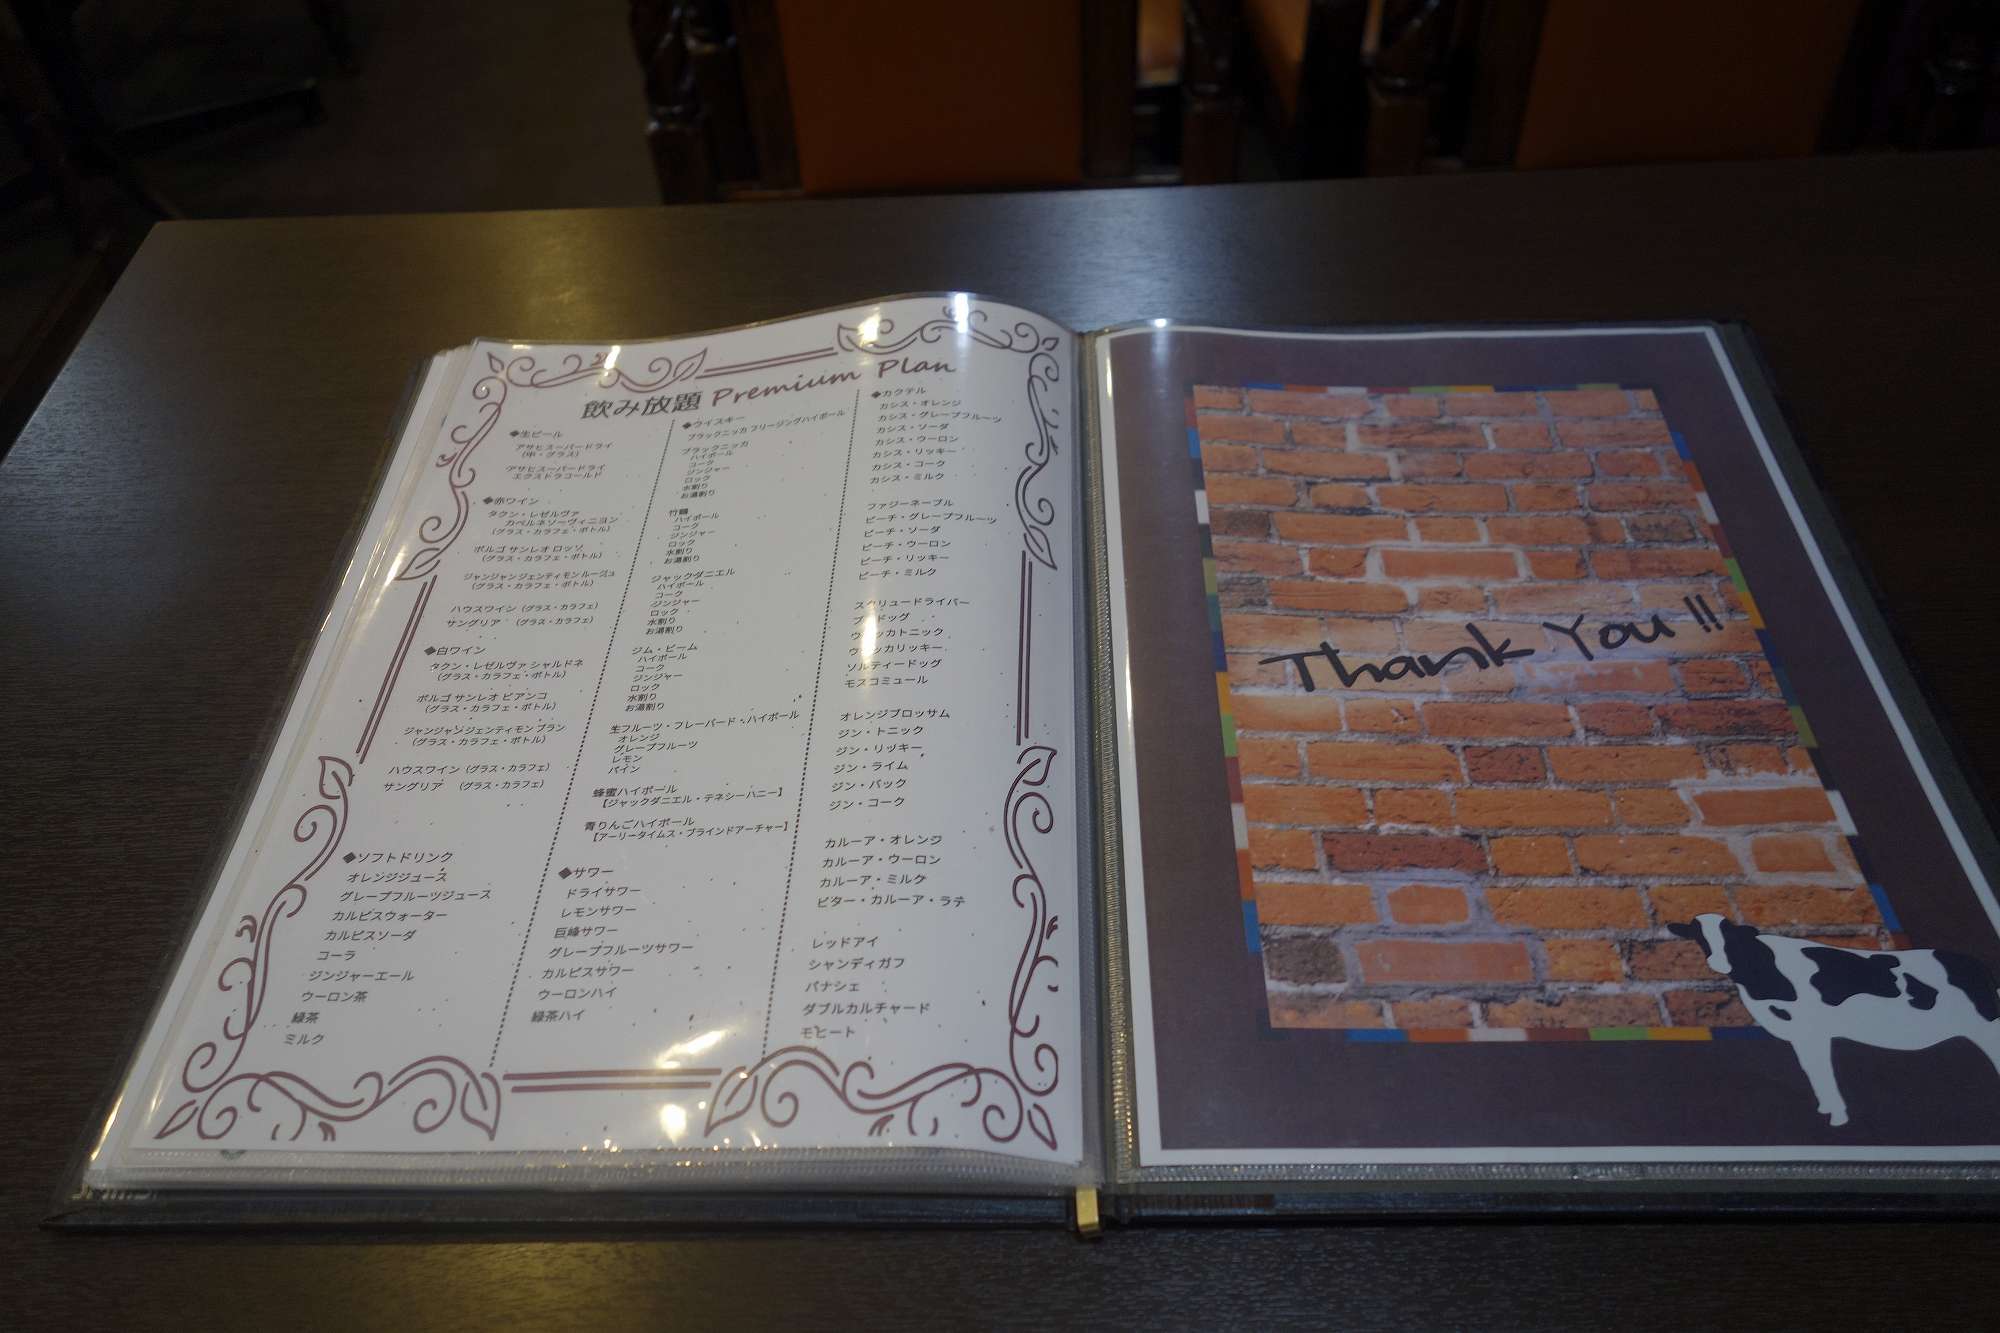 飲み放題 Premium Plan
◆生ビール
アサヒスーパードライ
(中・グラス)
アサヒスーパードライ
エクストラコールド
◆赤ワイン
タクン・レゼルヴァ
カベルネソーヴィニヨン
(グラス・カラフェ・ボトル)
ボルゴ サンレオ ロッソ
(グラス・カラフェ・ボトル)
ジャンジャンジェンティモン ルージュ
(グラス・カラフェ・ボトル)
ハウスワイン (グラス・カラフェ)
サングリア (グラス・カラフェ)
◆白ワイン
タクン・レゼルヴァ シャルドネ
(グラス・カラフェ・ボトル)
ボルゴ サンレオ ビアンコ
(グラス・カラフェ・ボトル)
ジャンジャンジェンティモン ブラン
(グラス・カラフェ・ボトル)
ハウスワイン (グラス・カラフェ)
サングリア (グラス・カラフェ)
◆ソフトドリンク
オレンジジュース
グレープフルーツジュース
カルピスウォーター
カルピスソーダ
コーラ
ジンジャーエール
ウーロン茶
緑茶
ミルク
◆ウイスキー
ブラックニッカ フリージングハイボール
ブラックニッカ
ハイボール
コーク
ジンジャー
ロック
水割り
お湯割り
竹鶴
ハイボール
コーク
ジンジャー
ロック
水割り
お湯割り
ジャックダニエル
ハイボール
コーク
ジンジャー
ロック
水割り
お湯割り
ジム・ビーム
ハイボール
コーク
ジンジャー
ロック
水割り
お湯割り
生フルーツ・フレーバード・ハイボール
オレンジ
グレープフルーツ
レモン
パイン
蜂蜜ハイボール
【ジャックダニエル・テネシーハニー】
青りんごハイボール
【アーリータイムス・ブラインドアーチャー】
◆サワー
ドライサワー
レモンサワー
巨峰サワー
グレープフルーツサワー
カルピスサワー
ウーロンハイ
緑茶ハイ
◆カクテル
カシス・オレンジ
カシス・グレープフルーツ
カシス・ソーダ
カシス・ウーロン
カシス・リッキー
カシス・コーク
カシス・ミルク
ファジーネーブル
ピーチ・グレープフルーツ
ピーチ・ソーダ
ピーチ・ウーロン
ピーチ・リッキー
ピーチ・ミルク
スクリュードライバー
ブルドッグ
ウォッカトニック
ウォッカリッキー
ソルティードッグ
モスコミュール
オレンジブロッサム
ジン・トニック
ジン・リッキー
ジン・ライム
ジン・バック
ジン・コーク
カルーア・オレンジ
カルーア・ウーロン
カルーア・ミルク
ビター・カルーア・ラテ
レッドアイ
シャンディガフ
パナシェ
ダブルカルチャード
モヒート
Thank You!!